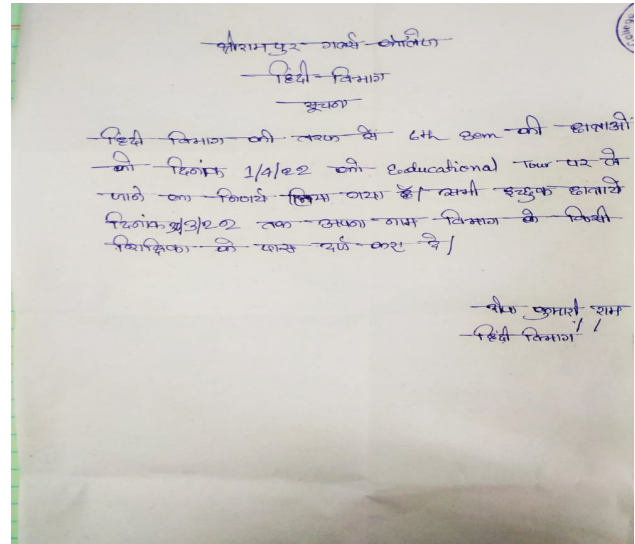 श्रीरामपुर गर्ल्स कॉलेज
हिंदी विभाग
सूचना
हिंदी विभाग की तरफ से 6th Sem की छात्राओं
को दिनांक 1/4/22 को Educational Tour पर ले
जाने का निर्णय लिया गया है। सभी इच्छुक छात्रायें
दिनांक /3/22 तक अपना नाम विभाग के किसी
शिक्षिका के पास दर्ज करा दे।
कुमारी राम
हिंदी विभाग
College